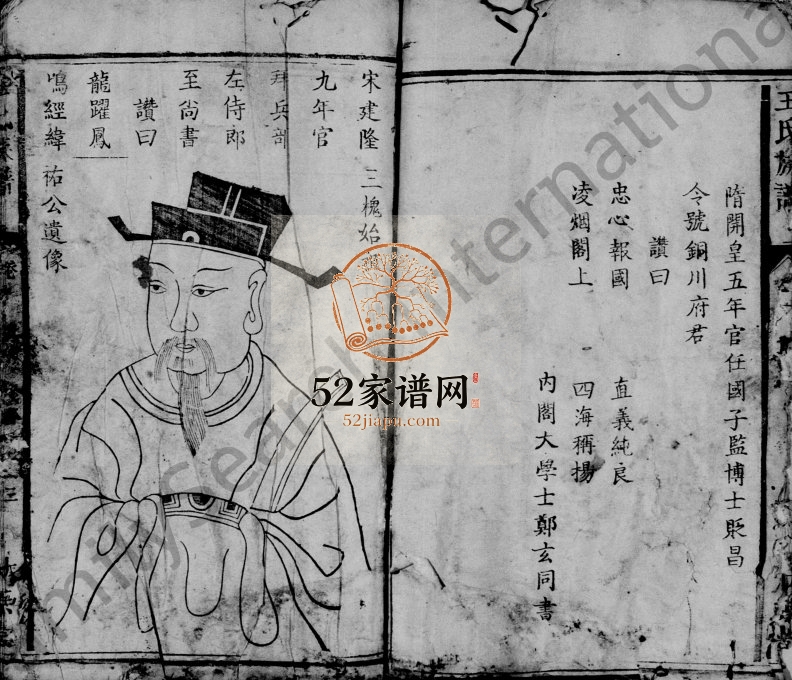 王氏族譜
隋開皇五年官任國子監博士貶昌
令號銅川府君
讚曰
忠心報國 直義純良
凌烟閣上 四海稱揚
內閣大學士鄭玄同書
宋建隆 三槐始
九年官
拜兵部
左侍郎
至尚書
讚曰
龍躍鳳
鳴經緯 祐公遺像
52家谱网
52jiapu.com
FamilySearch International